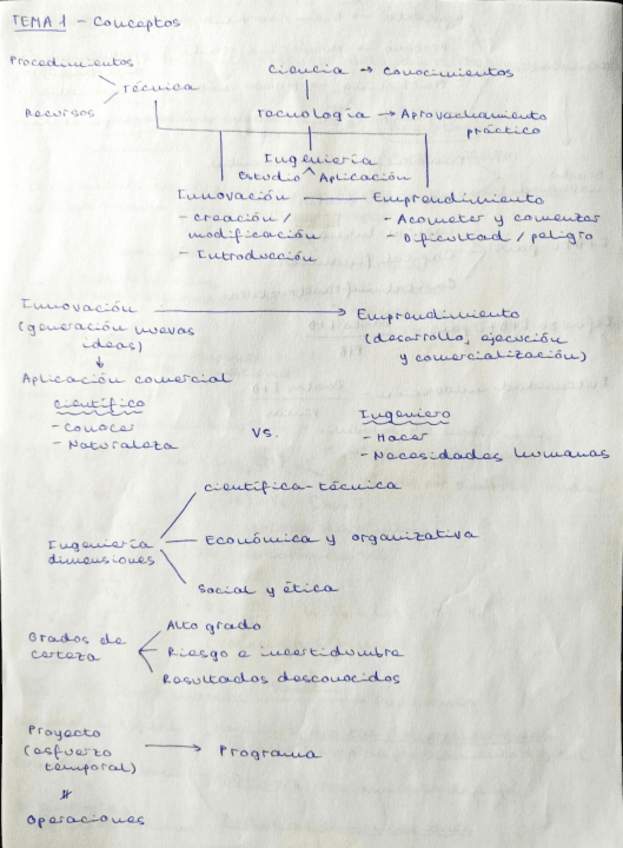 TEMA 1 - Conceptos
Procedimientos
Recursos
Técnica
Ciencia → Conocimientos
Tecnología → Aprovechamiento
práctico
Ingeniería
Estudio ^ Aplicación
Innovación
- Creación /
modificación
- Introducción
Emprendimiento
- Acometer y comenzar
- Dificultad / peligro
Innovación
(generación nuevas
ideas)
→ Emprendimiento
(desarrollo, ejecución
y comercialización)
↓
Aplicación comercial
Científico
- Conocer
- Naturaleza
vs.
Ingeniero
- Hacer
- Necesidades humanas
Ingeniería
dimensiones
Científica-técnica
Económica y organizativa
Social y ética
Grados de
certeza
Alto grado
Riesgo e incertidumbre
Resultados desconocidos
Proyecto
(esfuerzo
temporal)
→ Programa
≠
Operaciones